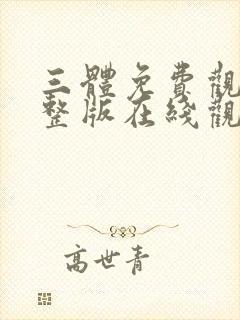 三體免費觀
整版在綫觀
高世青